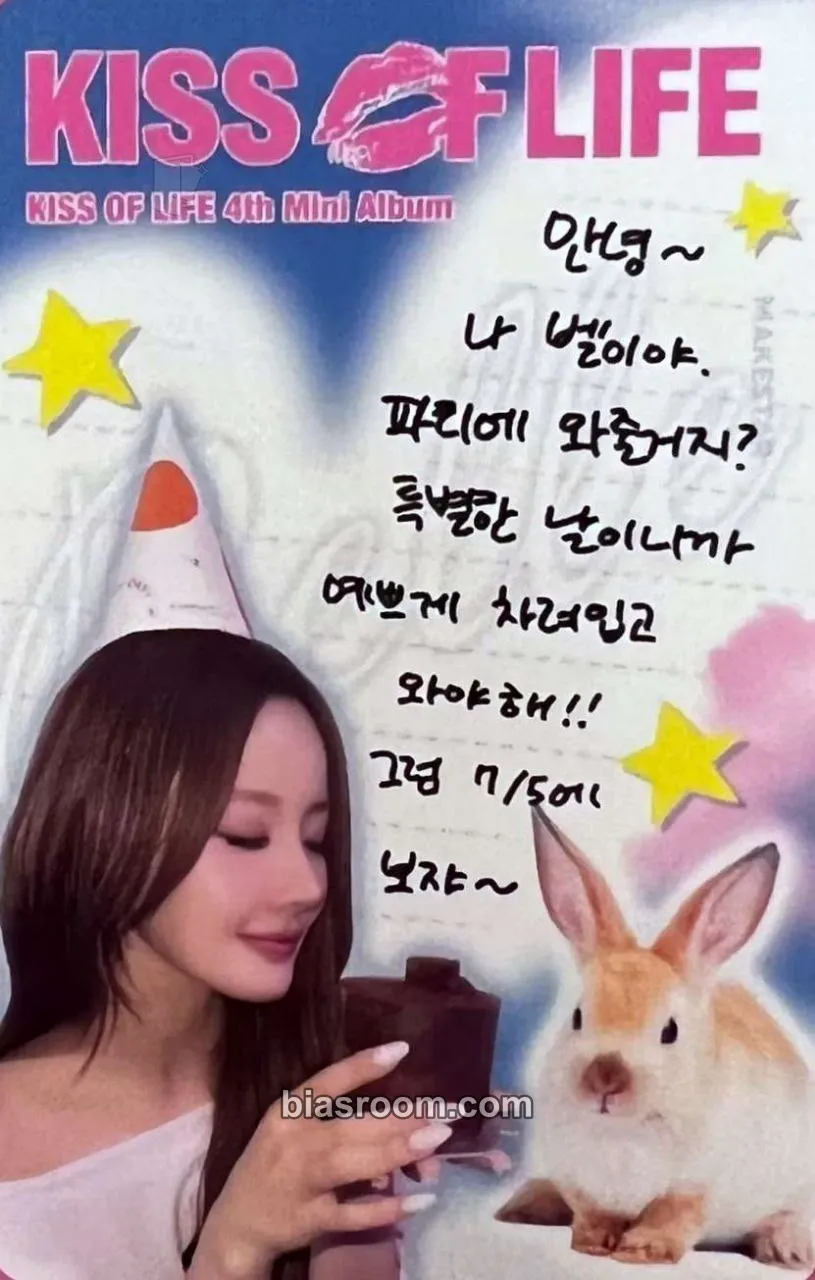 KISS OF LIFE
KISS OF LIFE 4th Mini Album
안녕~
나 벨이야.
파리에 와줄거지?
특별한 날이니까
예쁘게 차려입고
와야해!!
그럼 7/5에
보쟈~
MAKESTAR
biasroom.com